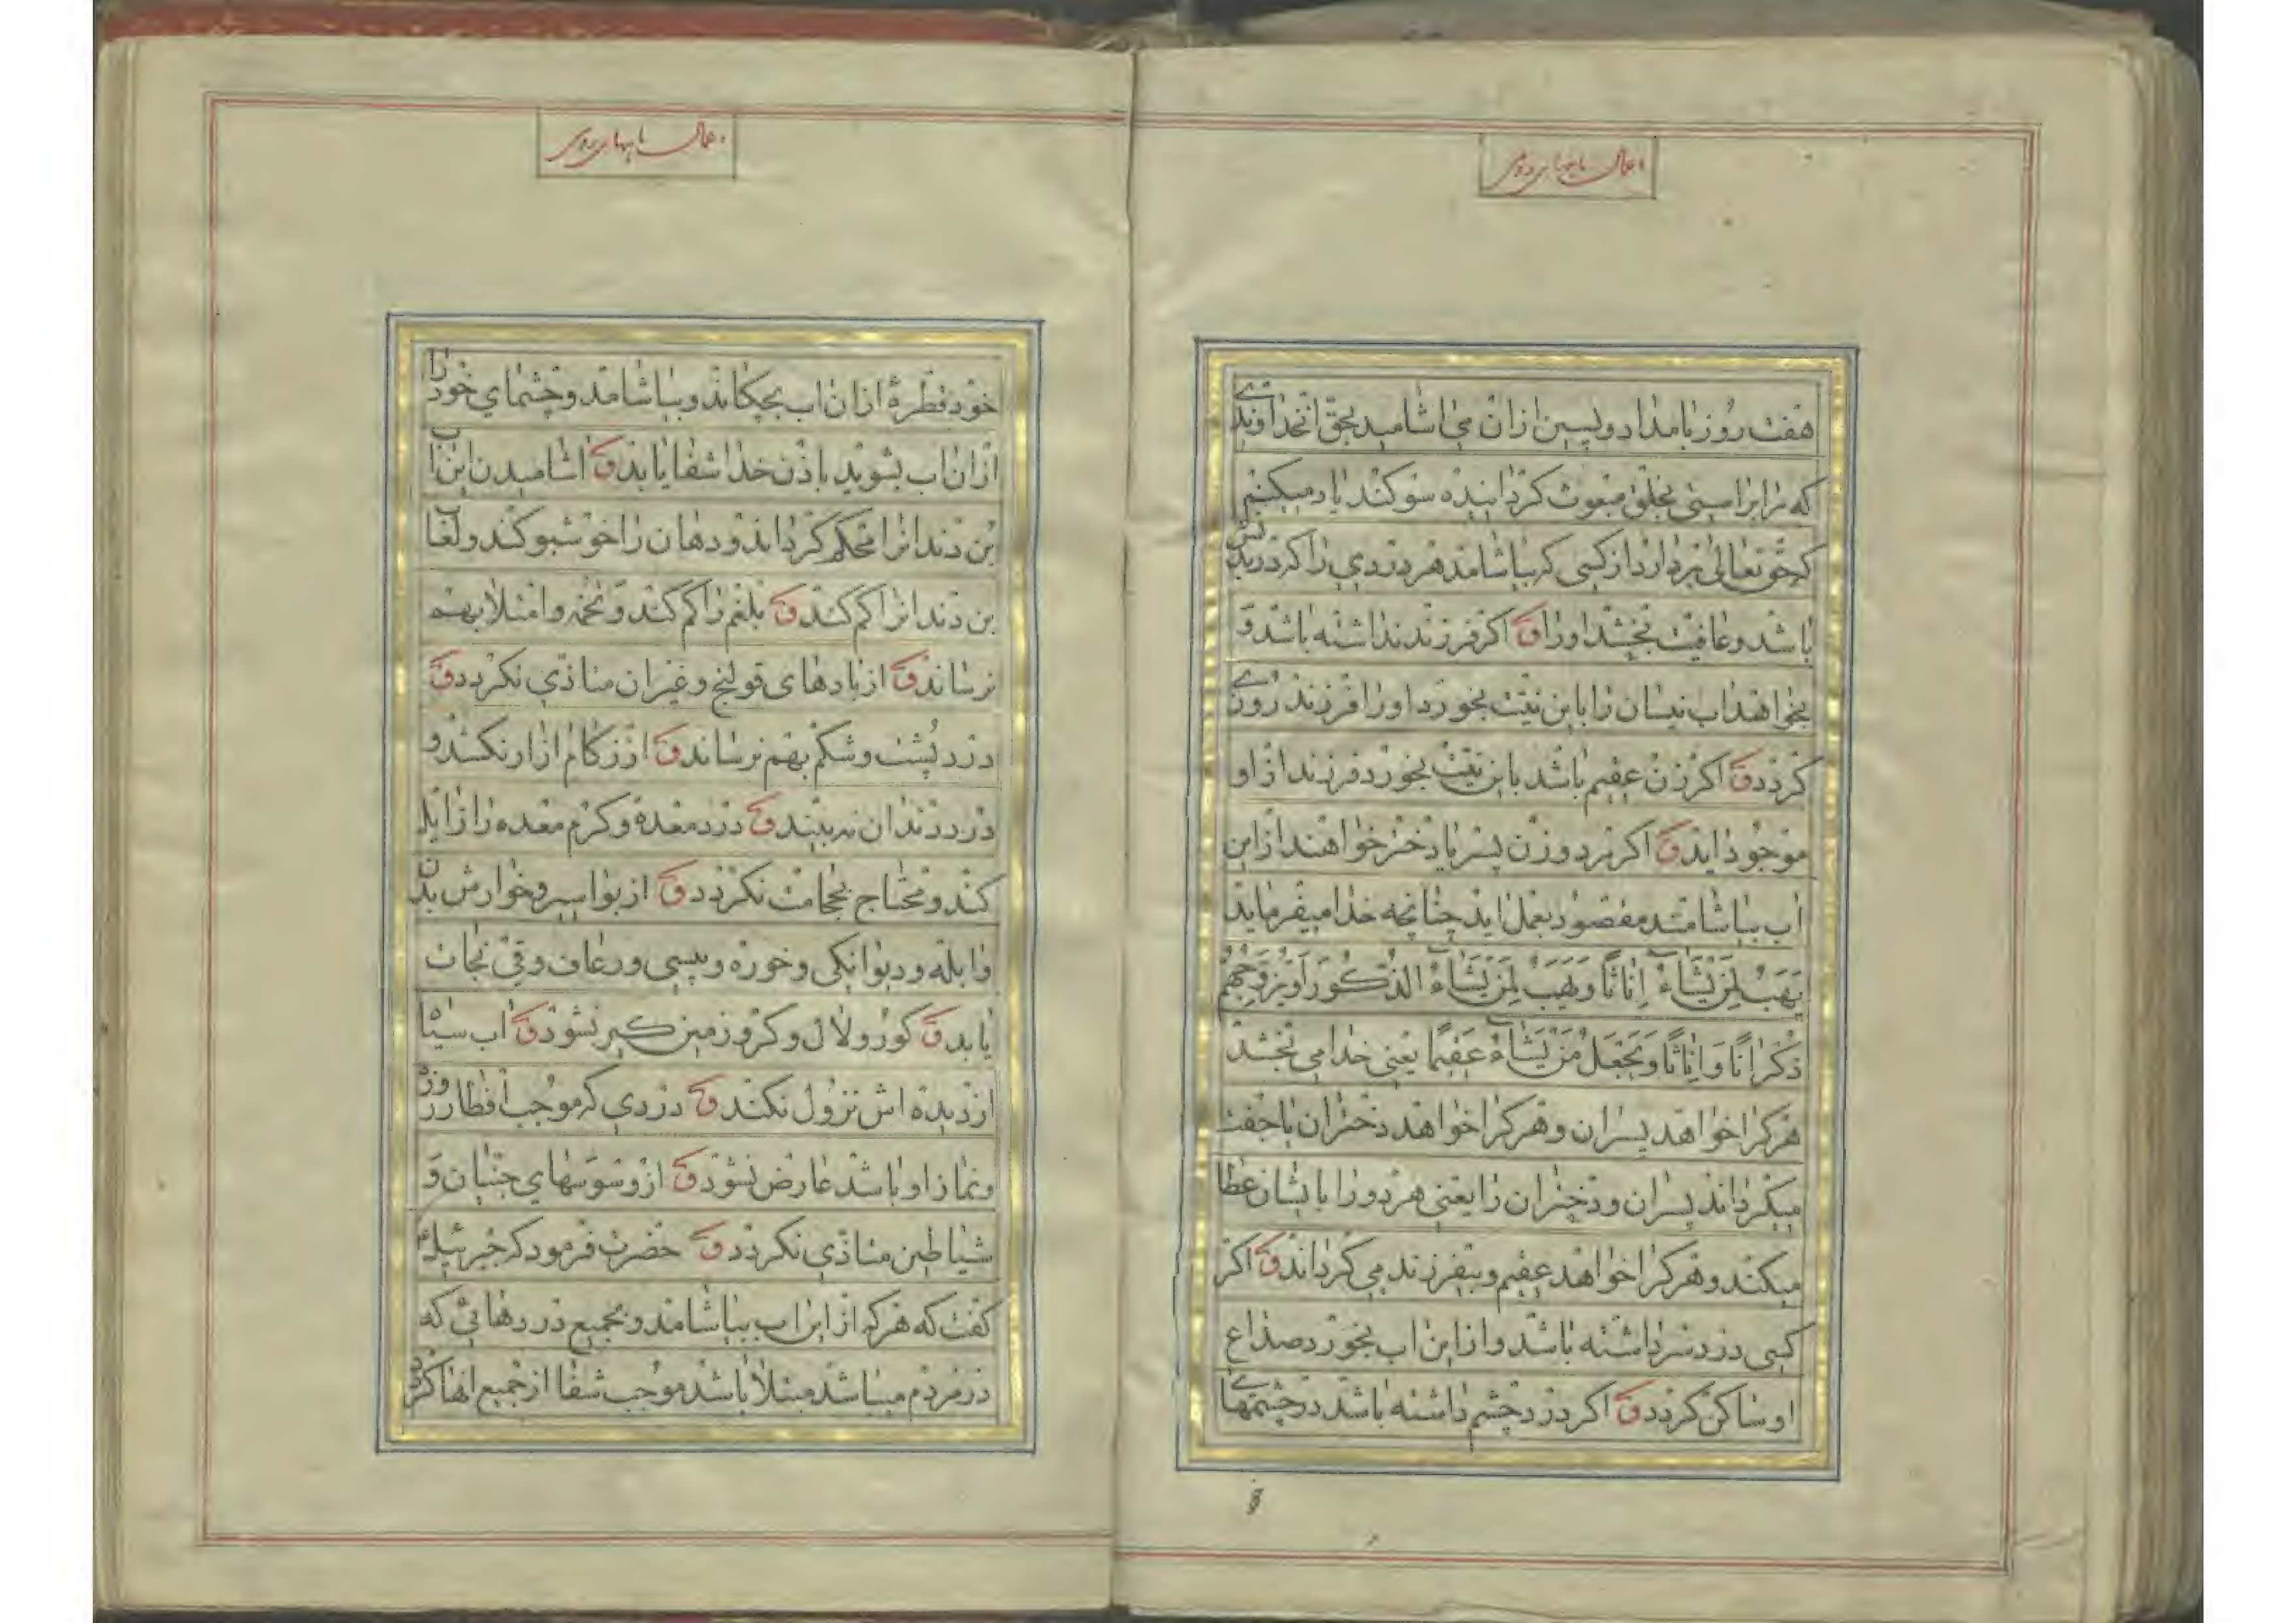 اعمال ماههای رومی
هفت روز بامداد و پسین ازان می اشامید بحق انخداوندے
که مرا براستی بخلق مبعوث کردانیده سوکند یاد میکنیم
که حق تعالی بردارد از کسی که بیاشامد هر دردی را که در بدنش
باشد و عافیت بخشد او را ق اکر فرزند نداشته باشد و
بخواهد اب نیسان را باین نیت بخورد او را فرزند روزے
کردد ق اکر زن عقیم باشد باین نیت بخورد فرزند از او
موجود اید ق اکر مرد و زن پسر یا دختر خواهند از این
اب بیاشامند مقصود بعمل اید چنانچه خدا میفرماید
یَهَبُ لِمَنْ یَشَاءُ اِنَاثًا وَ یَهَبُ لِمَنْ یَشَاءُ الذُّکُورَ اَوْ یُزَوِّجُهُمْ
ذُکْرَانًا وَ اِنَاثًا وَ یَجْعَلُ مَنْ یَشَاءُ عَقِیمًا یعنی خدا می بخشد
هرکرا خواهد پسران و هرکرا خواهد دختران یا جفت
میکرداند پسران و دختران را یعنی هر دو را بایشان عطا
میکند و هرکرا خواهد عقیم و بیفرزند می کرداند ق اکر
کسی درد سر داشته باشد و از این اب بخورد صداع
او ساکن کردد ق اکر درد چشم داشته باشد در چشمهاے
اعمال ماههای رومی
خود قطرهٔ ازان اب بچکاند و بیاشامد و چشمای خود را
ازان اب بشوید باذن خدا شفا یابد ق اشامیدن این اب
بن دندانرا محکم کرداند و دهان را خوشبو کند و لعاب
بن دندانرا کم کند ق بلغم را کم کند و تخمه و امتلا بهم
نرساند ق از بادهای قولنج و غیر ان متاذی نکردد ق
درد پشت و شکم بهم نرساند ق از زکام ازار نکشد و
درد دندان نه بیند ق درد معده و کرم معده را زایل
کند و محتاج بحجامت نکردد ق از بواسیر و خوارش بدن
و ابله و دیوانکی و خوره و پیسی و رعاف و قی نجات
یابد ق کور و لال و کر و زمین کیر نشود ق اب سیاه
از دیده اش نزول نکند ق دردی که موجب افطار روزه
و نماز او باشد عارض نشود ق از وسوسهای جنیان و
شیاطین متاذی نکردد ق حضرت فرمود که جبرئیل ع
کفت که هرکه از این اب بیاشامد و بجمیع دردهائی که
در مردم میباشد مبتلا باشد موجب شفا از جمیع انها کردد